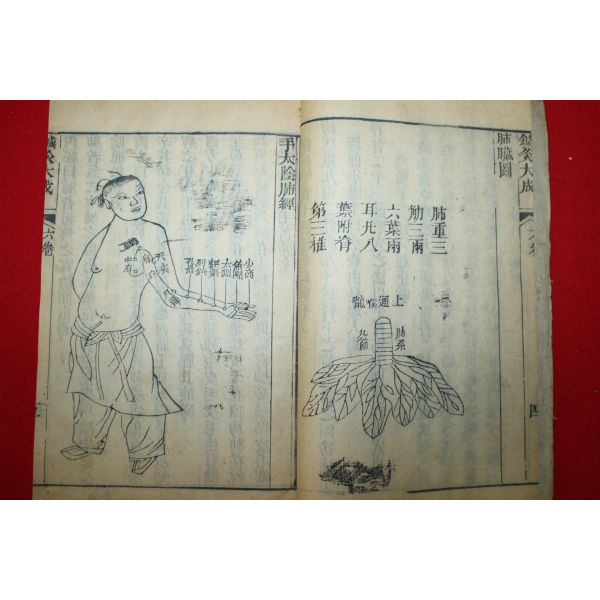 鍼灸大成
六卷
肺臟圖
肺重三
觔三兩
六葉兩
耳凡八
葉附脊
第三椎
上通喉嚨
肺系
九節
四
手太陰肺經
少商
魚際
太淵
經渠
列缺
孔最
天府
中府
鍼灸大成
六卷